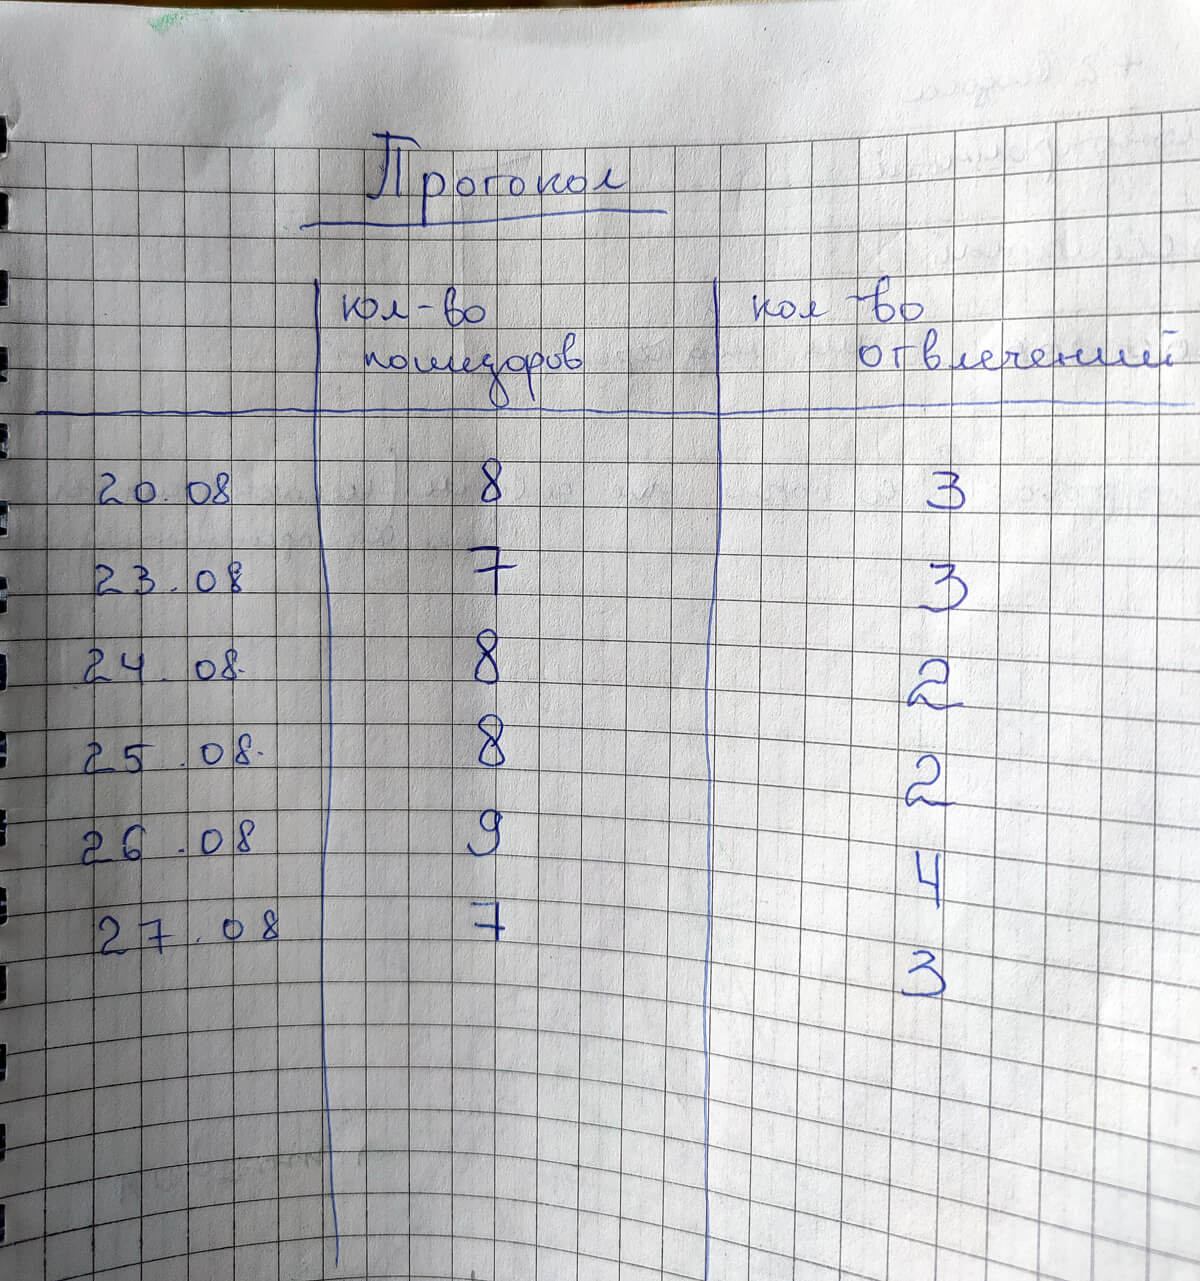 Протокол
кол-во кол-во
помидоров отвлечений
20.08 8 3
23.08 7 3
24.08. 8 2
25.08. 8 2
26.08 9 4
27.08 7 3